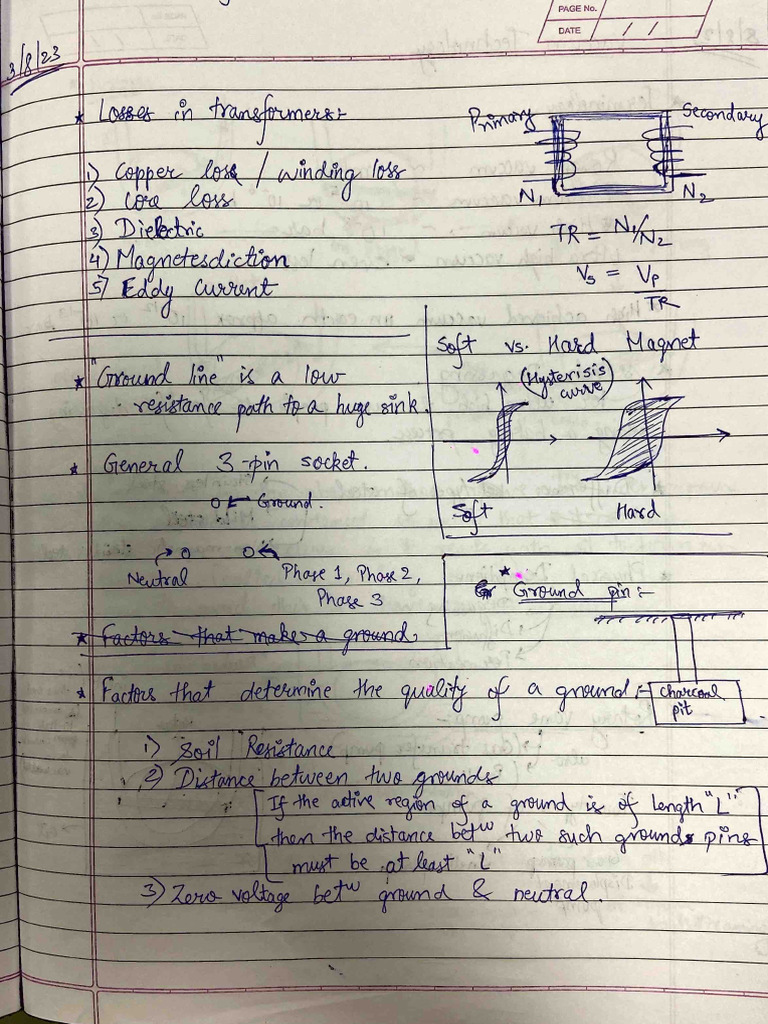 PAGE No.
DATE / /
3/8/23
* Losses in transformers:-
1) Copper loss / winding loss
2) Core loss
3) Dielectric
4) Magnetesdiction
5) Eddy Current
Primary
Secondary
N1
N2
TR = N1/N2
Vs = Vp
TR
* "Ground line" is a low
resistance path to a huge sink.
* General 3-pin socket.
Ground.
Neutral
Phase 1, Phase 2,
Phase 3
* Factors that make a ground.
Soft vs. Hard Magnet
(Hysterisis
curve)
Soft
Hard
* Ground pin:-
charcoal
pit
* Factors that determine the quality of a ground:-
1) Soil Resistance
2) Distance between two grounds:
[If the active region of a ground is of length "L"
then the distance betw two such grounds pins
must be at least "L"]
3) Zero voltage betw ground & neutral.